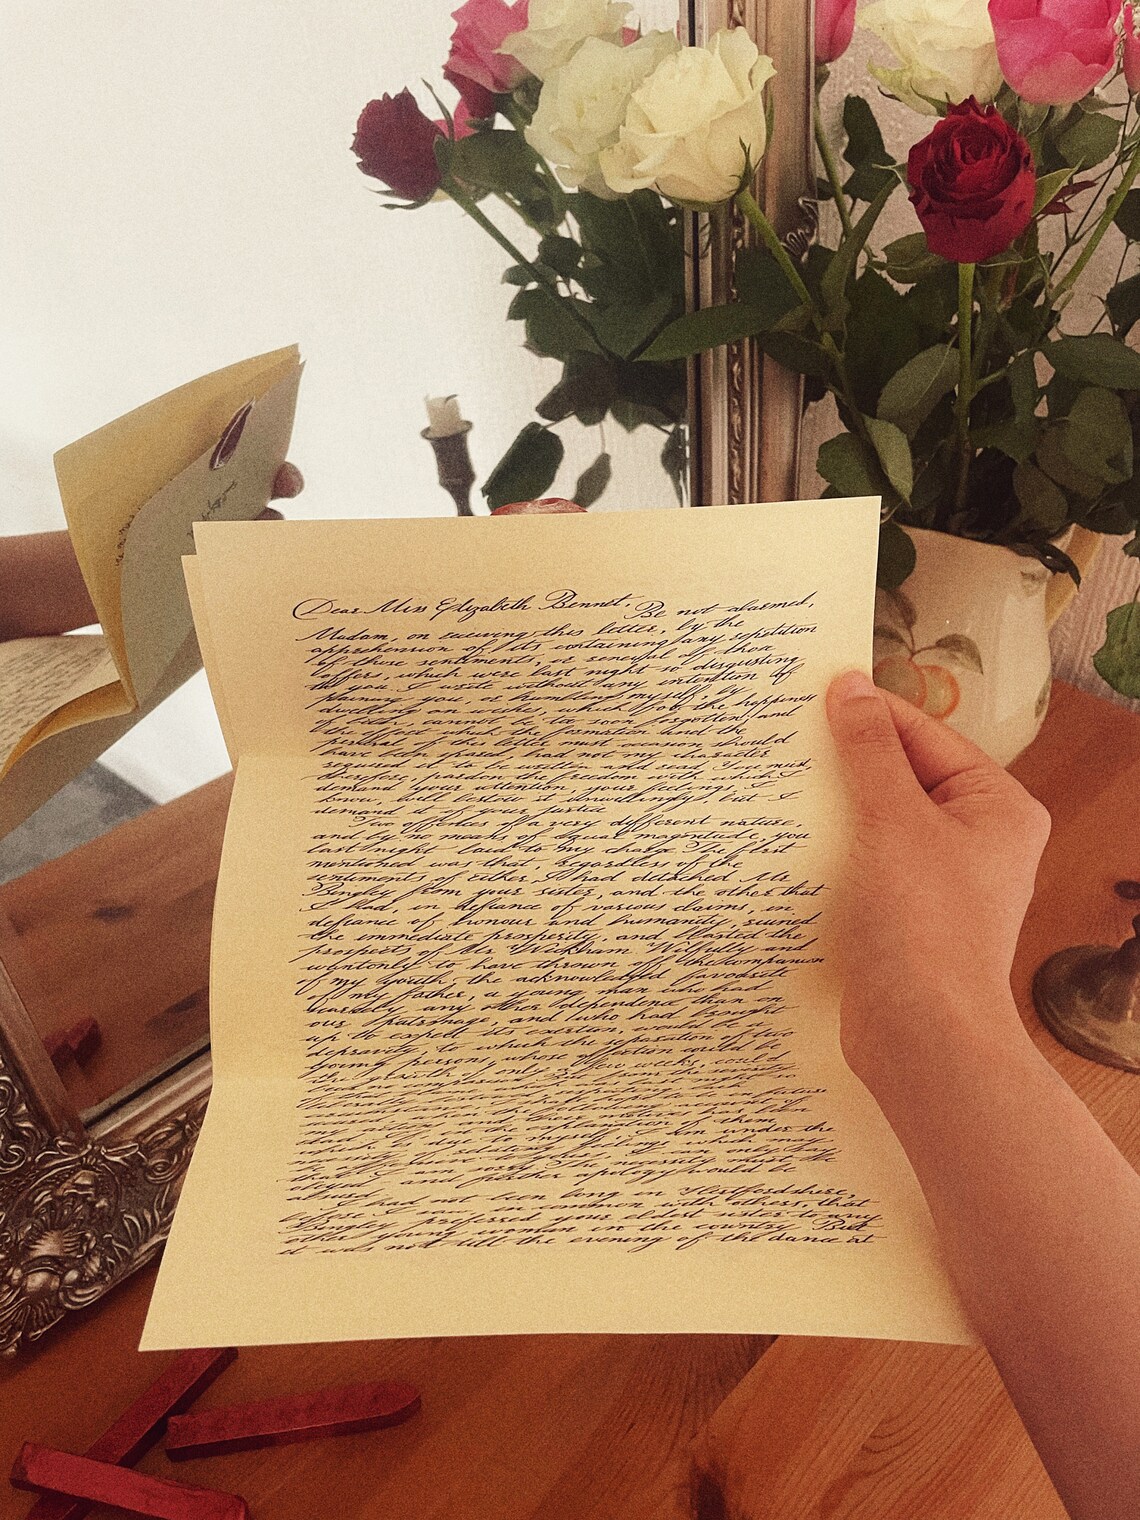 Dear Miss Elizabeth Bennet,
Be not alarmed,
Madam, on receiving this letter, by the
apprehension of its containing any repetition
of those sentiments, or renewal of those
offers, which were last night so disgusting
to you. I write without any intention of
paining you, or humbling myself, by
dwelling on wishes, which, for the happiness
of both, cannot be too soon forgotten; and
the effort which the formation and the
perusal of this letter must occasion should
have been spared, had not my character
required it to be written and read. You must,
therefore, pardon the freedom with which I
demand your attention, your feelings, I
know, will bestow it unwillingly, but I
demand it of your justice
Two offences of a very different nature,
and by no means of equal magnitude, you
last night laid to my charge. The first
mentioned was that, regardless of the
sentiments of either, I had detached Mr
Bingley from your sister, and the other that
I had, in defiance of various claims, in
defiance of honour and humanity, ruined
the immediate prosperity, and blasted the
prospects of Mr Wickham Wilfully and
wantonly to have thrown off the companion
of my youth, the acknowledged favourite
of my father, a young man who had
scarcely any other dependence than on
our patronage, and who had been brought
up to expect its exertion, would be a
depravity, to which the separation of two
young persons, whose affection could be
the growth of only a few weeks, could
of last night
circumstances, I shall hope to be in future
secured, when the following account of
my actions and their motives has been
read If, in the explanation of them,
which is due to myself, I am under the
necessity of relating feelings which may
be offensive to yours, I can only say
that I am sorry The necessity must be
obeyed and further apology would be
absurd
I had not been long in Hertfordshire,
before I saw, in common with others, that
Bingley preferred your eldest sister to any
other young woman in the country But
it was not till the evening of the dance at